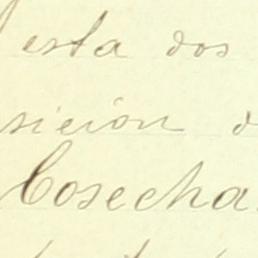 esta dos
sicion d
Cosecha.